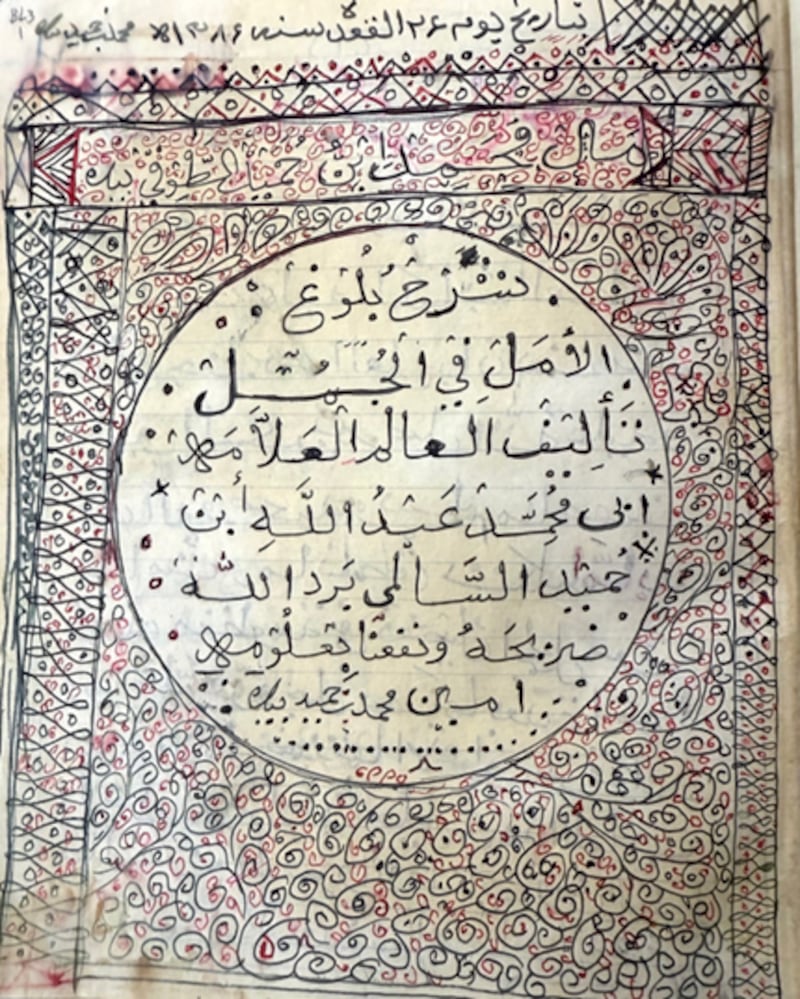 بتاريخ يوم ٢٦ القعدة سنة ١٣٨٦ محمد بن حميد بيك
مال محمد ابن حميد الطوقي بيك
شرح بلوغ
الأَمَل في الجُمَل
تَأليف العالم العَلاَّمَه
ابي مُحمَّد عَبْدُ اللَّهِ أبن
حُميْد السَّالمي بَرد اللَّه
ضريحَهُ ونفعنا بعلومه
امين محمد بن حميد بيك